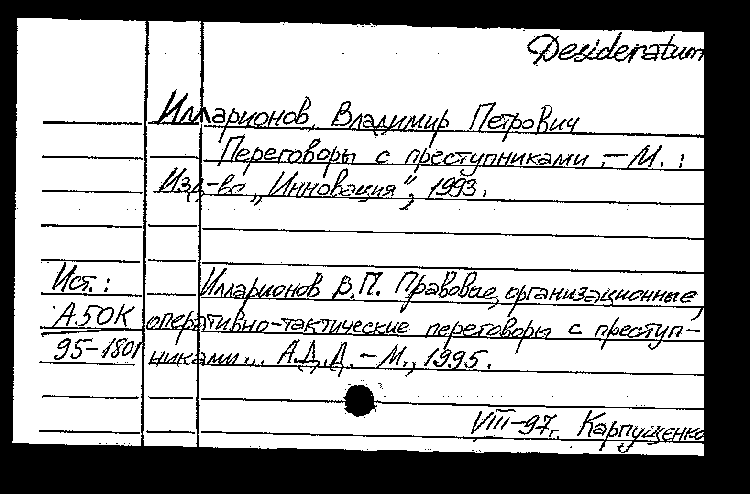 Desideratum
Илларионов, Владимир Петрович
Переговоры с преступниками. – М. :
Изд-во „Инновация", 1993.
Ист.: Илларионов В.П. Правовые, организационные,
А.50К оперативно-тактические переговоры с преступ-
95-1801 никами... А.Д.Д. – М., 1995.
VIII-97г. Карпущенко